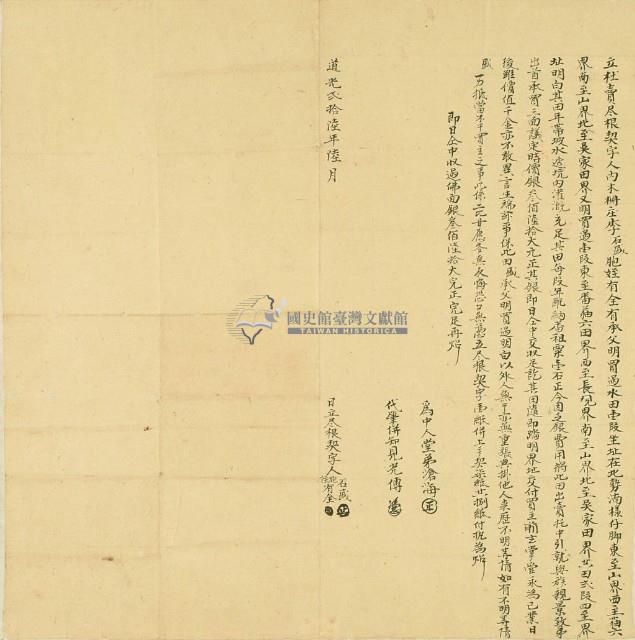 立杜賣尽根契字人內木柵庄李石盛胞姪有全有承父明買過水田壹段坐址在北勢湳檨仔脚東至山界西至
界南至山界北至吳家田界又明買過壹段東至番福六田界西至長 界南至山界北至吳家田界共田弍段四至界
址明白其田年帶坡水 坑內灌溉充足其田每段年配納 租粟壹石正今因乏銀費用將此田出賣托中引就與族親 致事
出首承買三面議定時價銀叁佰陸拾大元正其銀即日仝中交收足訖其田隨即踏明界址交付買主 掌管永為己業日
後雖價值千金亦不敢異言生端 事保此田盛承父明買過明白以外人無干亦無重張典掛他人來歷不明等情如有不明等情
盛一力抵當不干買主之事此係二比甘愿各無反悔恐口無憑立尽根契字壹紙併上手契 紙共捌紙付執為炤
即日仝中收過佛面銀叁佰陸拾大完正完足再炤
為中人堂弟滄海
代筆併知見 傳
道光弍拾陸年陸月
日立尽根契字人石盛
胞姪有全
國史館臺灣文獻館
TAIWAN HISTORICA